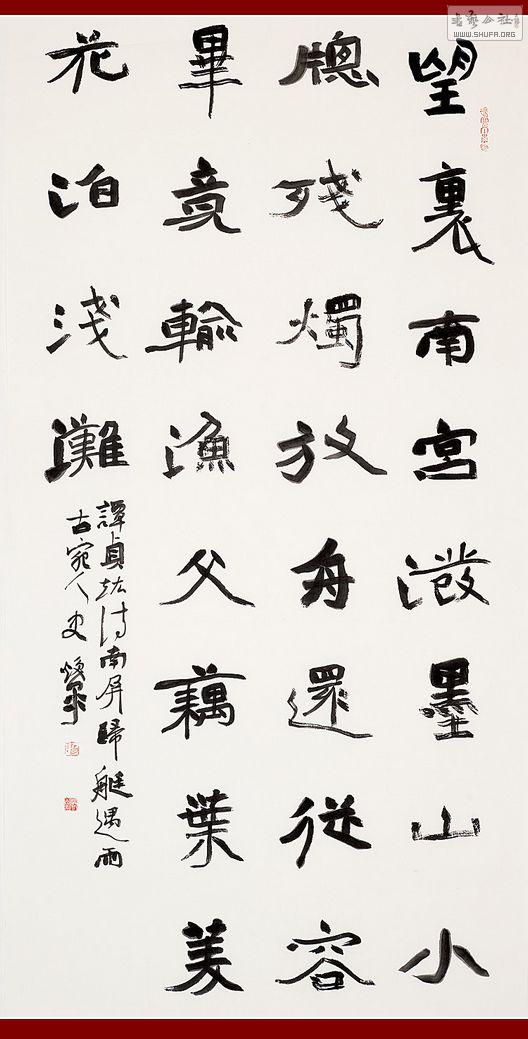 望裏南宮潑墨山小
牕殘燭放舟還從容
畢竟輸漁父藕葉美
花泊淺灘
譚貞竑诗南屏歸艇遇雨
古宛人史
书艺公社
WWW.SHUFA.ORG